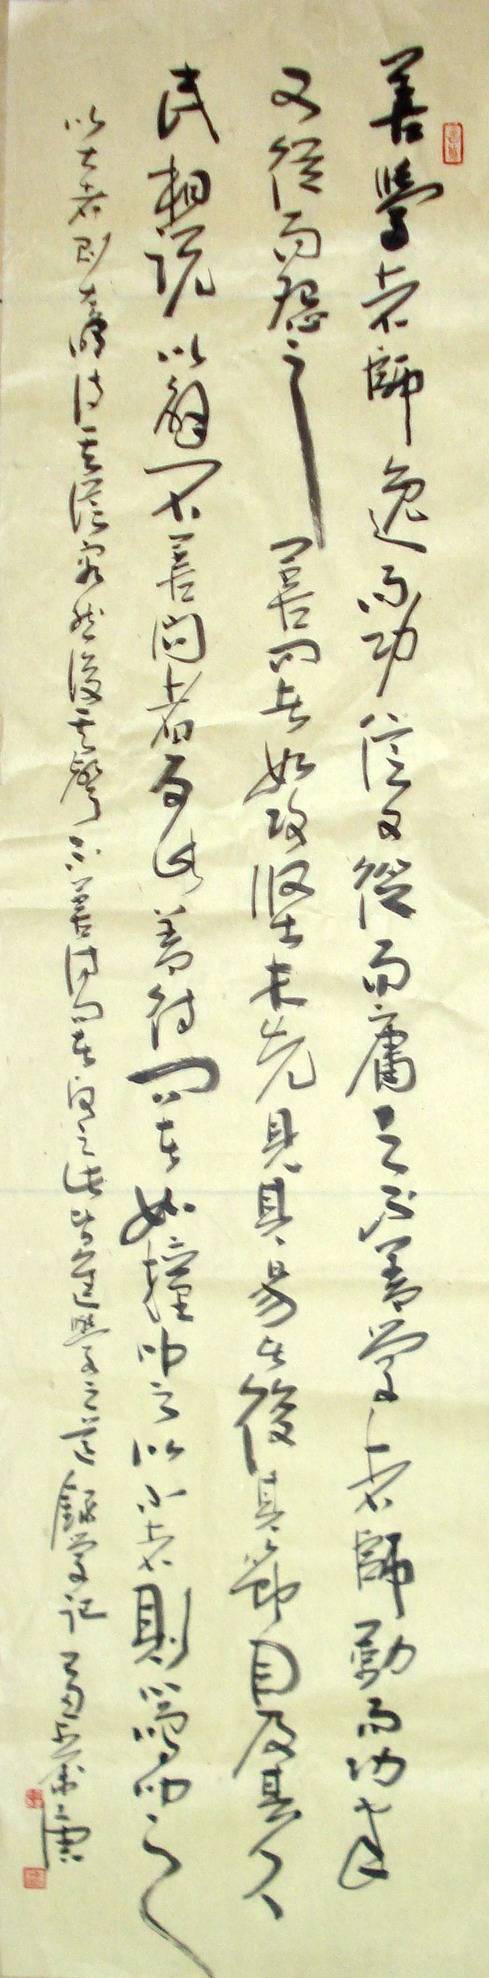 善學者師逸而功倍又從而庸之不善學者師勤而功半
又從而怨之善問者如攻堅木先其易者後其節目及其久
也相說以解不善問者反此善待問者如撞叩之以小者則小鳴叩之
以大者則大鳴待其從容然後其聲不善待問者反之此皆進學之道錄學記